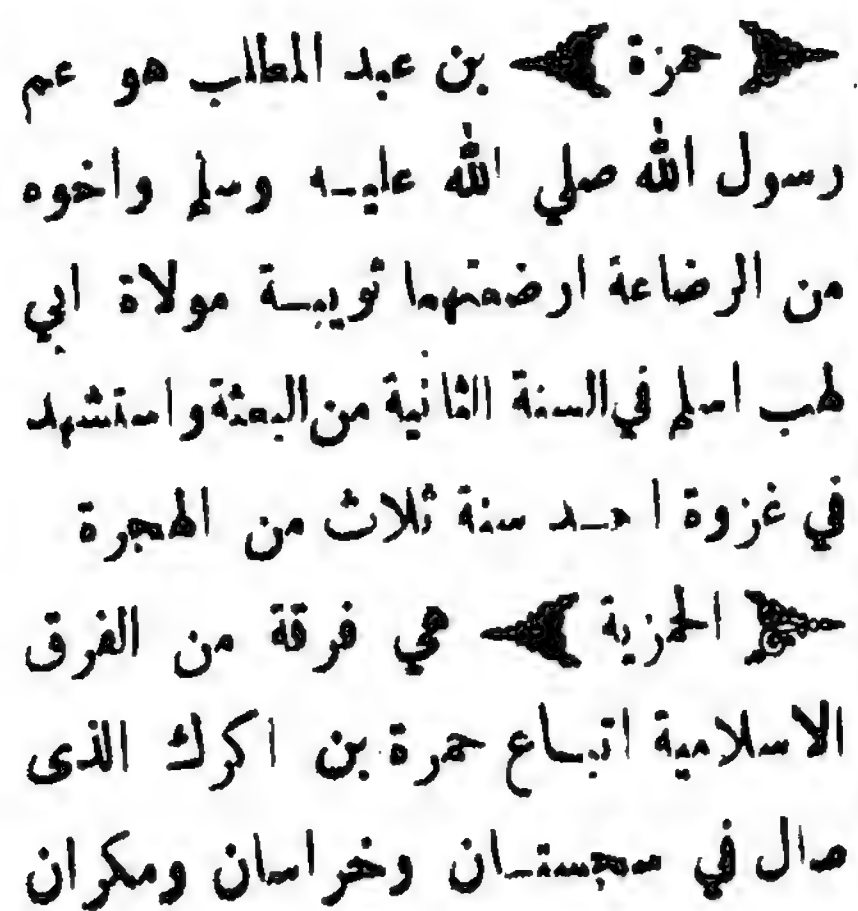 ﴿ حمزة ﴾ بن عبد المطلب هو عم
رسول الله صلي الله عليـه وسلم واخوه
من الرضاعة ارضعتهما ثويبـة مولاة ابي
لهب اسلم في السنة الثانية من البعثة واستشهد
في غزوة احـد سنة ثلاث من الهجرة
﴿ الحمزية ﴾ هي فرقة من الفرق
الاسلامية اتبـاع حمرة بن اكرك الذى
صال في سجستـان وخراسان ومكران